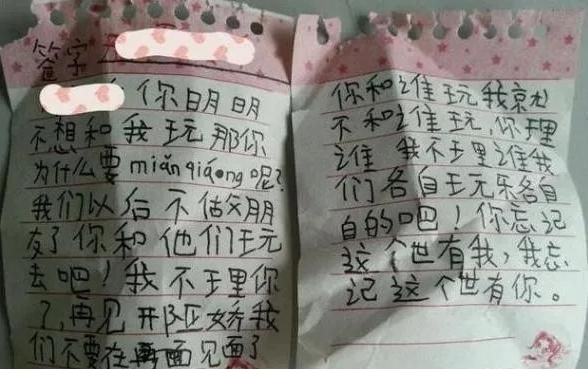 签字
你明明
不想和我玩那你
为什么要miǎnqiǎng呢?
我们以后不做朋
友了你和他们玩
去吧!我不理你
了,再见邢娅娇我
们不要在再面见面了
你和谁玩我就
不和谁玩,你理
谁 我不理谁我
们各自玩乐各自
自的吧!你忘记
这个世有我,我忘
记这个世有你。